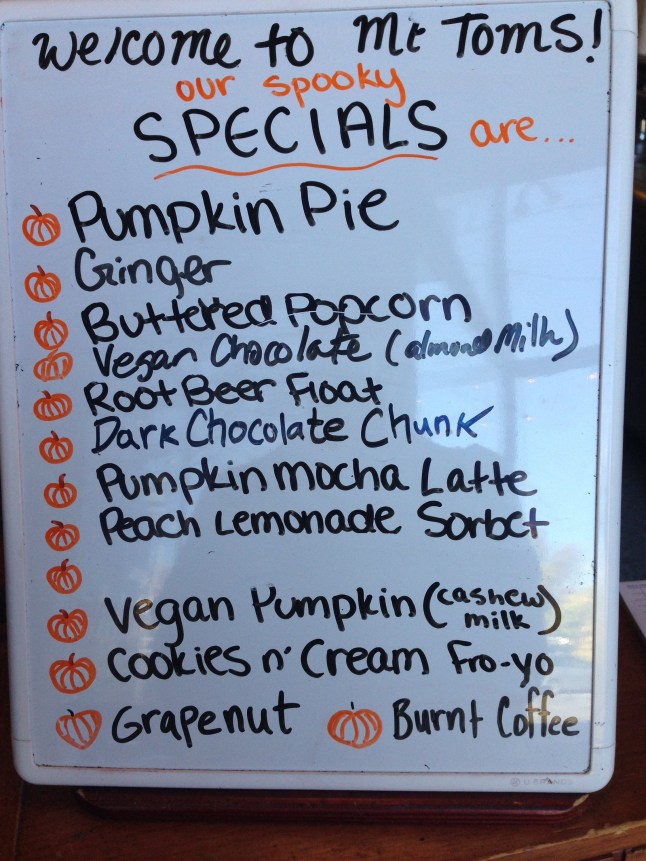 Welcome to Mt Toms!
our spooky
SPECIALS are...
Pumpkin Pie
Ginger
Buttered Popcorn
Vegan Chocolate (almond Milk)
Root Beer Float
Dark Chocolate Chunk
Pumpkin mocha Latte
Peach Lemonade Sorbet
Vegan Pumpkin (cashew milk)
Cookies n' Cream Fro-yo
Grapenut Burnt Coffee